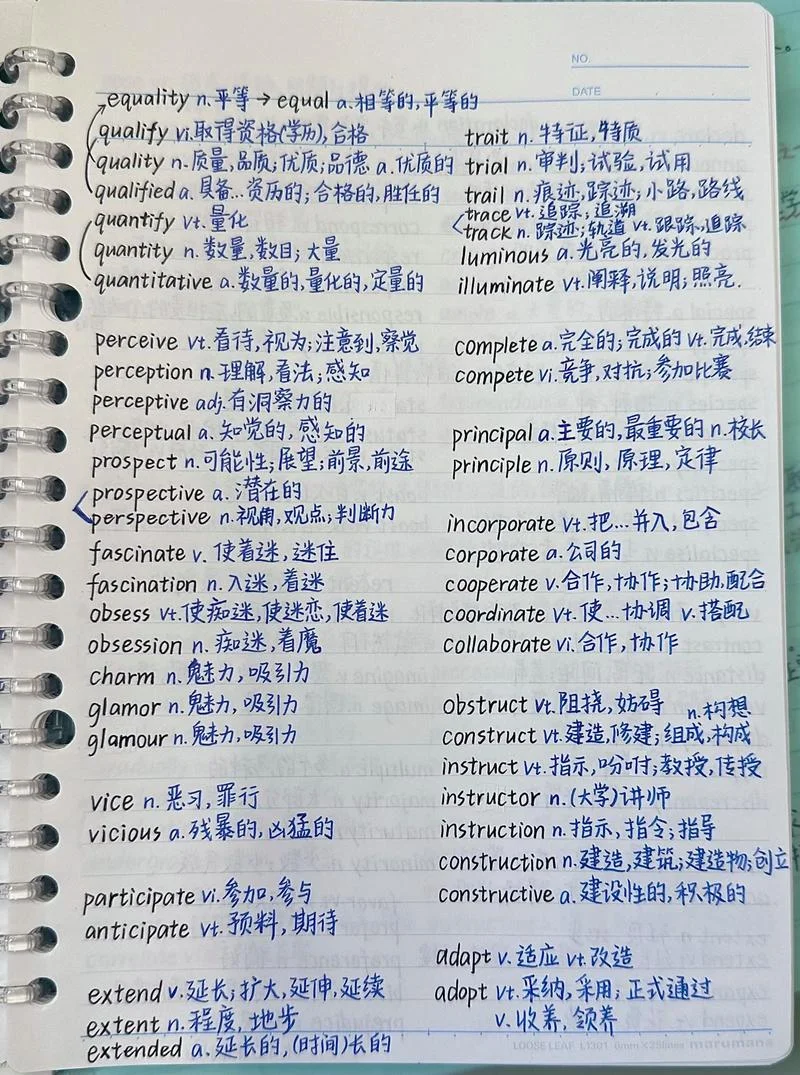 NO.
DATE
equality n.平等→equal a.相等的,平等的
qualify vi.取得资格(学历),合格
quality n.质量,品质;优质;品德 a.优质的
qualified a.具备…资历的;合格的,胜任的
quantify vt.量化
quantity n.数量,数目;大量
quantitative a.数量的,量化的,定量的
perceive vt.看待,视为;注意到,察觉
perception n.理解,看法;感知
perceptive adj.有洞察力的
perceptual a.知觉的,感知的
prospect n.可能性;展望;前景,前途
prospective a.潜在的
perspective n.视角,观点;判断力
fascinate v.使着迷,迷住
fascination n.入迷,着迷
obsess vt.使痴迷,使迷恋,使着迷
obsession n.痴迷,着魔
charm n.魅力,吸引力
glamor n.魅力,吸引力
glamour n.魅力,吸引力
vice n.恶习,罪行
vicious a.残暴的,凶猛的
participate vi.参加,参与
anticipate vt.预料,期待
extend v.延长;扩大,延伸,延续
extent n.程度,地步
extended a.延长的,(时间)长的
trait n.特征,特质
trial n.审判;试验,试用
trail n.痕迹,踪迹;小路,路线
trace vt.追踪,追溯
track n.踪迹;轨道 vt.跟踪,追踪
luminous a.光亮的,发光的
illuminate vt.阐释,说明;照亮.
complete a.完全的;完成的 vt.完成,结束
compete vi.竞争,对抗;参加比赛
principal a.主要的,最重要的 n.校长
principle n.原则,原理,定律
incorporate vt.把…并入,包含
corporate a.公司的
cooperate v.合作,协作;协助,配合
coordinate vt.使…协调 v.搭配
collaborate vi.合作,协作
obstruct vt.阻挠,妨碍
n.构想
construct vt.建造,修建;组成,构成
instruct vt.指示,吩咐;教授,传授
instructor n.(大学)讲师
instruction n.指示,指令;指导
construction n.建造,建筑;建造物;创立
constructive a.建设性的,积极的
adapt v.适应 vt.改造
adopt vt.采纳,采用;正式通过
v.收养,领养
LOOSE LEAF L1301 6mm×28lines maruman